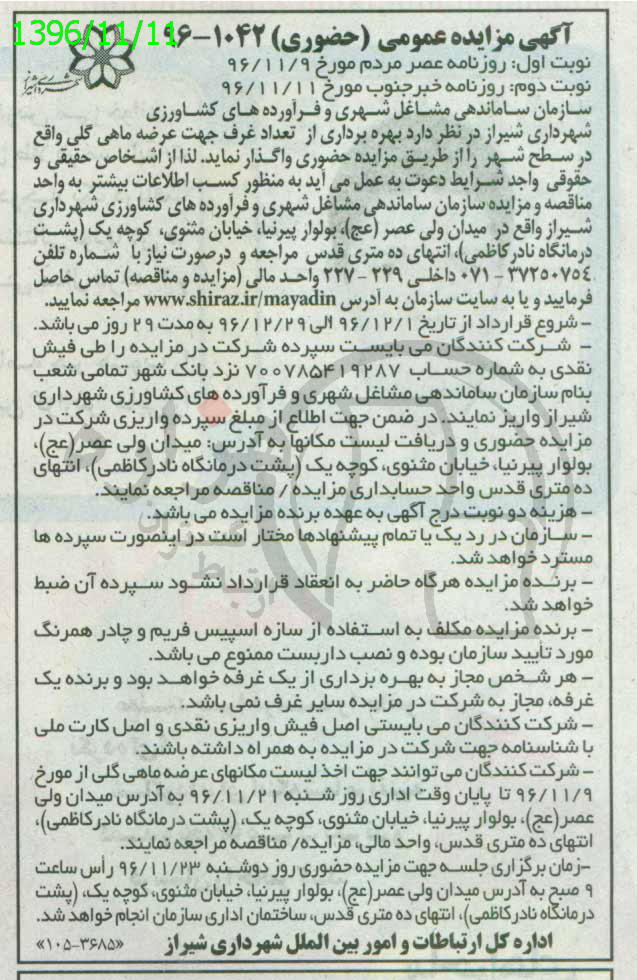 1396/11/11
آگهی مزایده عمومی (حضوری) ۱۰۴۲-۹۶
نوبت اول: روزنامه عصر مردم مورخ ۹۶/۱۱/۹
نوبت دوم: روزنامه خبرجنوب مورخ ۹۶/۱۱/۱۱
شهرداری شیراز
سازمان ساماندهی مشاغل شهری و فرآورده های کشاورزی
شهرداری شیراز در نظر دارد بهره برداری از تعداد غرف جهت عرضه ماهی گلی واقع
در سطح شهر را از طریق مزایده حضوری واگذار نماید. لذا از اشخاص حقیقی و
حقوقی واجد شرایط دعوت به عمل می آید به منظور کسب اطلاعات بیشتر به واحد
مناقصه و مزایده سازمان ساماندهی مشاغل شهری و فرآورده های کشاورزی شهرداری
شیراز واقع در میدان ولی عصر (عج)، بولوار پیرنیا، خیابان مثنوی، کوچه یک (پشت
درمانگاه نادرکاظمی)، انتهای ده متری قدس مراجعه و درصورت نیاز با شماره تلفن
۳۷۲۵۰۷۵٤ -۰۷۱ داخلی ۲۲۹ - ۲۲۷ واحد مالی (مزایده و مناقصه) تماس حاصل
فرمایید و یا به سایت سازمان به آدرس www.shiraz.ir/mayadin مراجعه نمایید.
- شروع قرارداد از تاریخ ۹۶/۱۲/۱ الی ۹۶/۱۲/۲۹ به مدت ۲۹ روز می باشد.
- شرکت کنندگان می بایست سپرده شرکت در مزایده را طی فیش
نقدی به شماره حساب ۷۰۰۷۸۵۴۱۹۲۸۷ نزد بانک شهر تمامی شعب
بنام سازمان ساماندهی مشاغل شهری و فرآورده های کشاورزی شهرداری
شیراز واریز نمایند. در ضمن جهت اطلاع از مبلغ سپرده واریزی شرکت در
مزایده حضوری و دریافت لیست مکانها به آدرس: میدان ولی عصر(عج)،
بولوار پیرنیا، خیابان مثنوی، کوچه یک (پشت درمانگاه نادرکاظمی)، انتهای
ده متری قدس واحد حسابداری مزایده / مناقصه مراجعه نمایند.
- هزینه دو نوبت درج آگهی به عهده برنده مزایده می باشد.
- سازمان در رد یک یا تمام پیشنهادها مختار است در اینصورت سپرده ها
مسترد خواهد شد.
- برنده مزایده هرگاه حاضر به انعقاد قرارداد نشود سپرده آن ضبط
خواهد شد.
- برنده مزایده مکلف به استفاده از سازه اسپیس فریم و چادر همرنگ
مورد تأیید سازمان بوده و نصب داربست ممنوع می باشد.
- هر شخص مجاز به بهره برداری از یک غرفه خواهد بود و برنده یک
غرفه، مجاز به شرکت در مزایده سایر غرف نمی باشد.
- شرکت کنندگان می بایستی اصل فیش واریزی نقدی و اصل کارت ملی
با شناسنامه جهت شرکت در مزایده به همراه داشته باشند.
- شرکت کنندگان می توانند جهت اخذ لیست مکانهای عرضه ماهی گلی از مورخ
۹۶/۱۱/۹ تا پایان وقت اداری روز شنبه ۹۶/۱۱/۲۱ به آدرس میدان ولی
عصر(عج)، بولوار پیرنیا، خیابان مثنوی، کوچه یک، (پشت درمانگاه نادرکاظمی)،
انتهای ده متری قدس، واحد مالی، مزایده/ مناقصه مراجعه نمایند.
-زمان برگزاری جلسه جهت مزایده حضوری روز دوشنبه ۹۶/۱۱/۲۳ رأس ساعت
۹ صبح به آدرس میدان ولی عصر(عج)، بولوار پیرنیا، خیابان مثنوی، کوچه یک، (پشت
درمانگاه نادرکاظمی)، انتهای ده متری قدس، ساختمان اداری سازمان انجام خواهد شد.
اداره کل ارتباطات و امور بین الملل شهرداری شیراز «۱۰۵-۳۶۸۵»